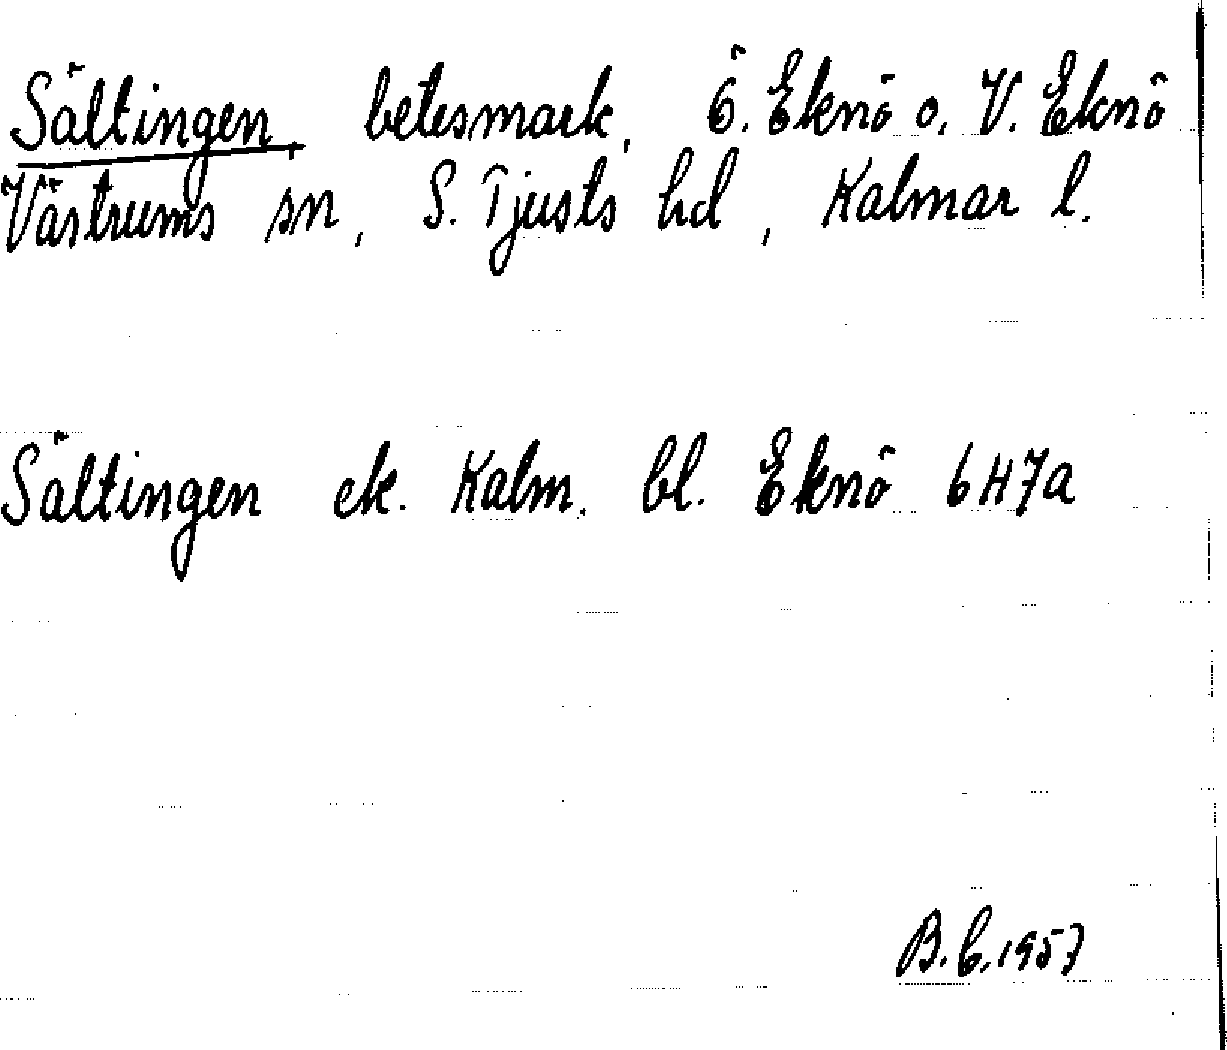 Sältingen, betesmark, Ö. Eknö o. V. Eknö
Västrums sn, S. Tjusts hd, Kalmar l.
Sältingen ek. Kalm. bl. Eknö 6H7a
B. C. 1957